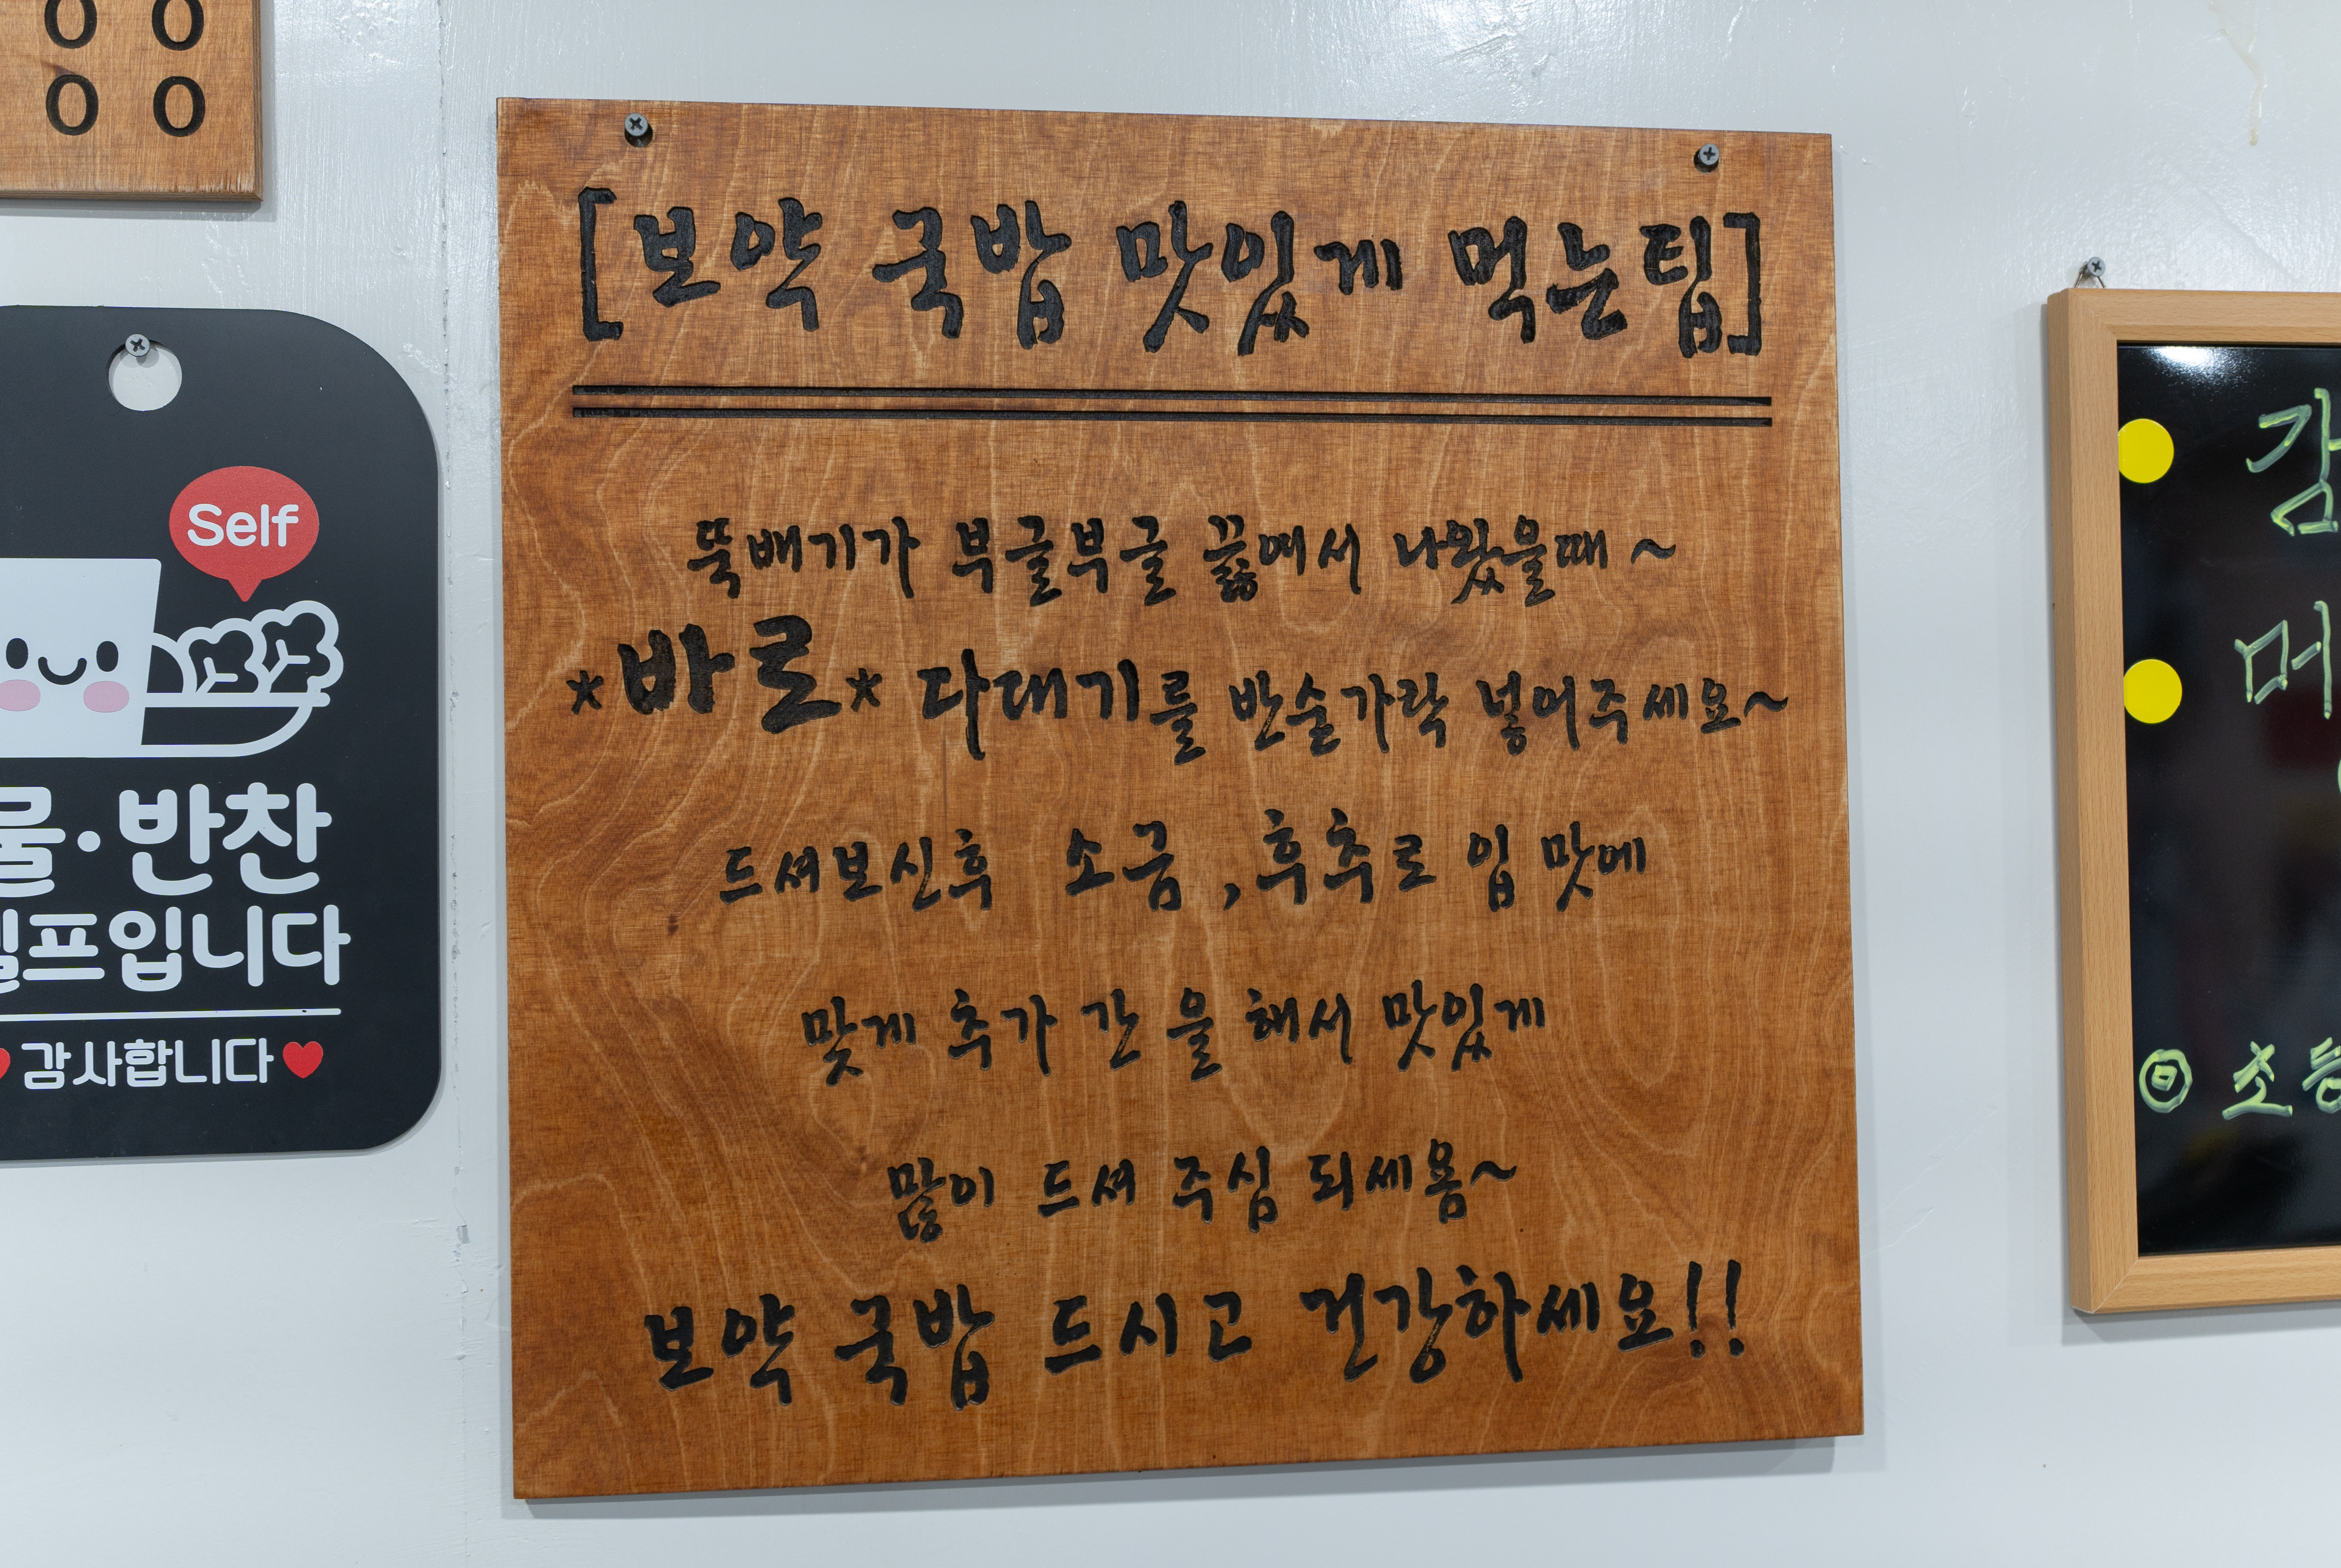 00
00
Self
물·반찬
셀프입니다
감사합니다
[보약 국밥 맛있게 먹는팁]
뚝배기가 부글부글 끓여서 나왔을때~
*바로* 다대기를 반술가락 넣어주세요~
드셔보신후 소금,후추로 입 맛에
맞게 추가 간 을 해서 맛있게
많이 드셔 주심 되세욤~
보약 국밥 드시고 건강하세요!!
감
◎ 초등